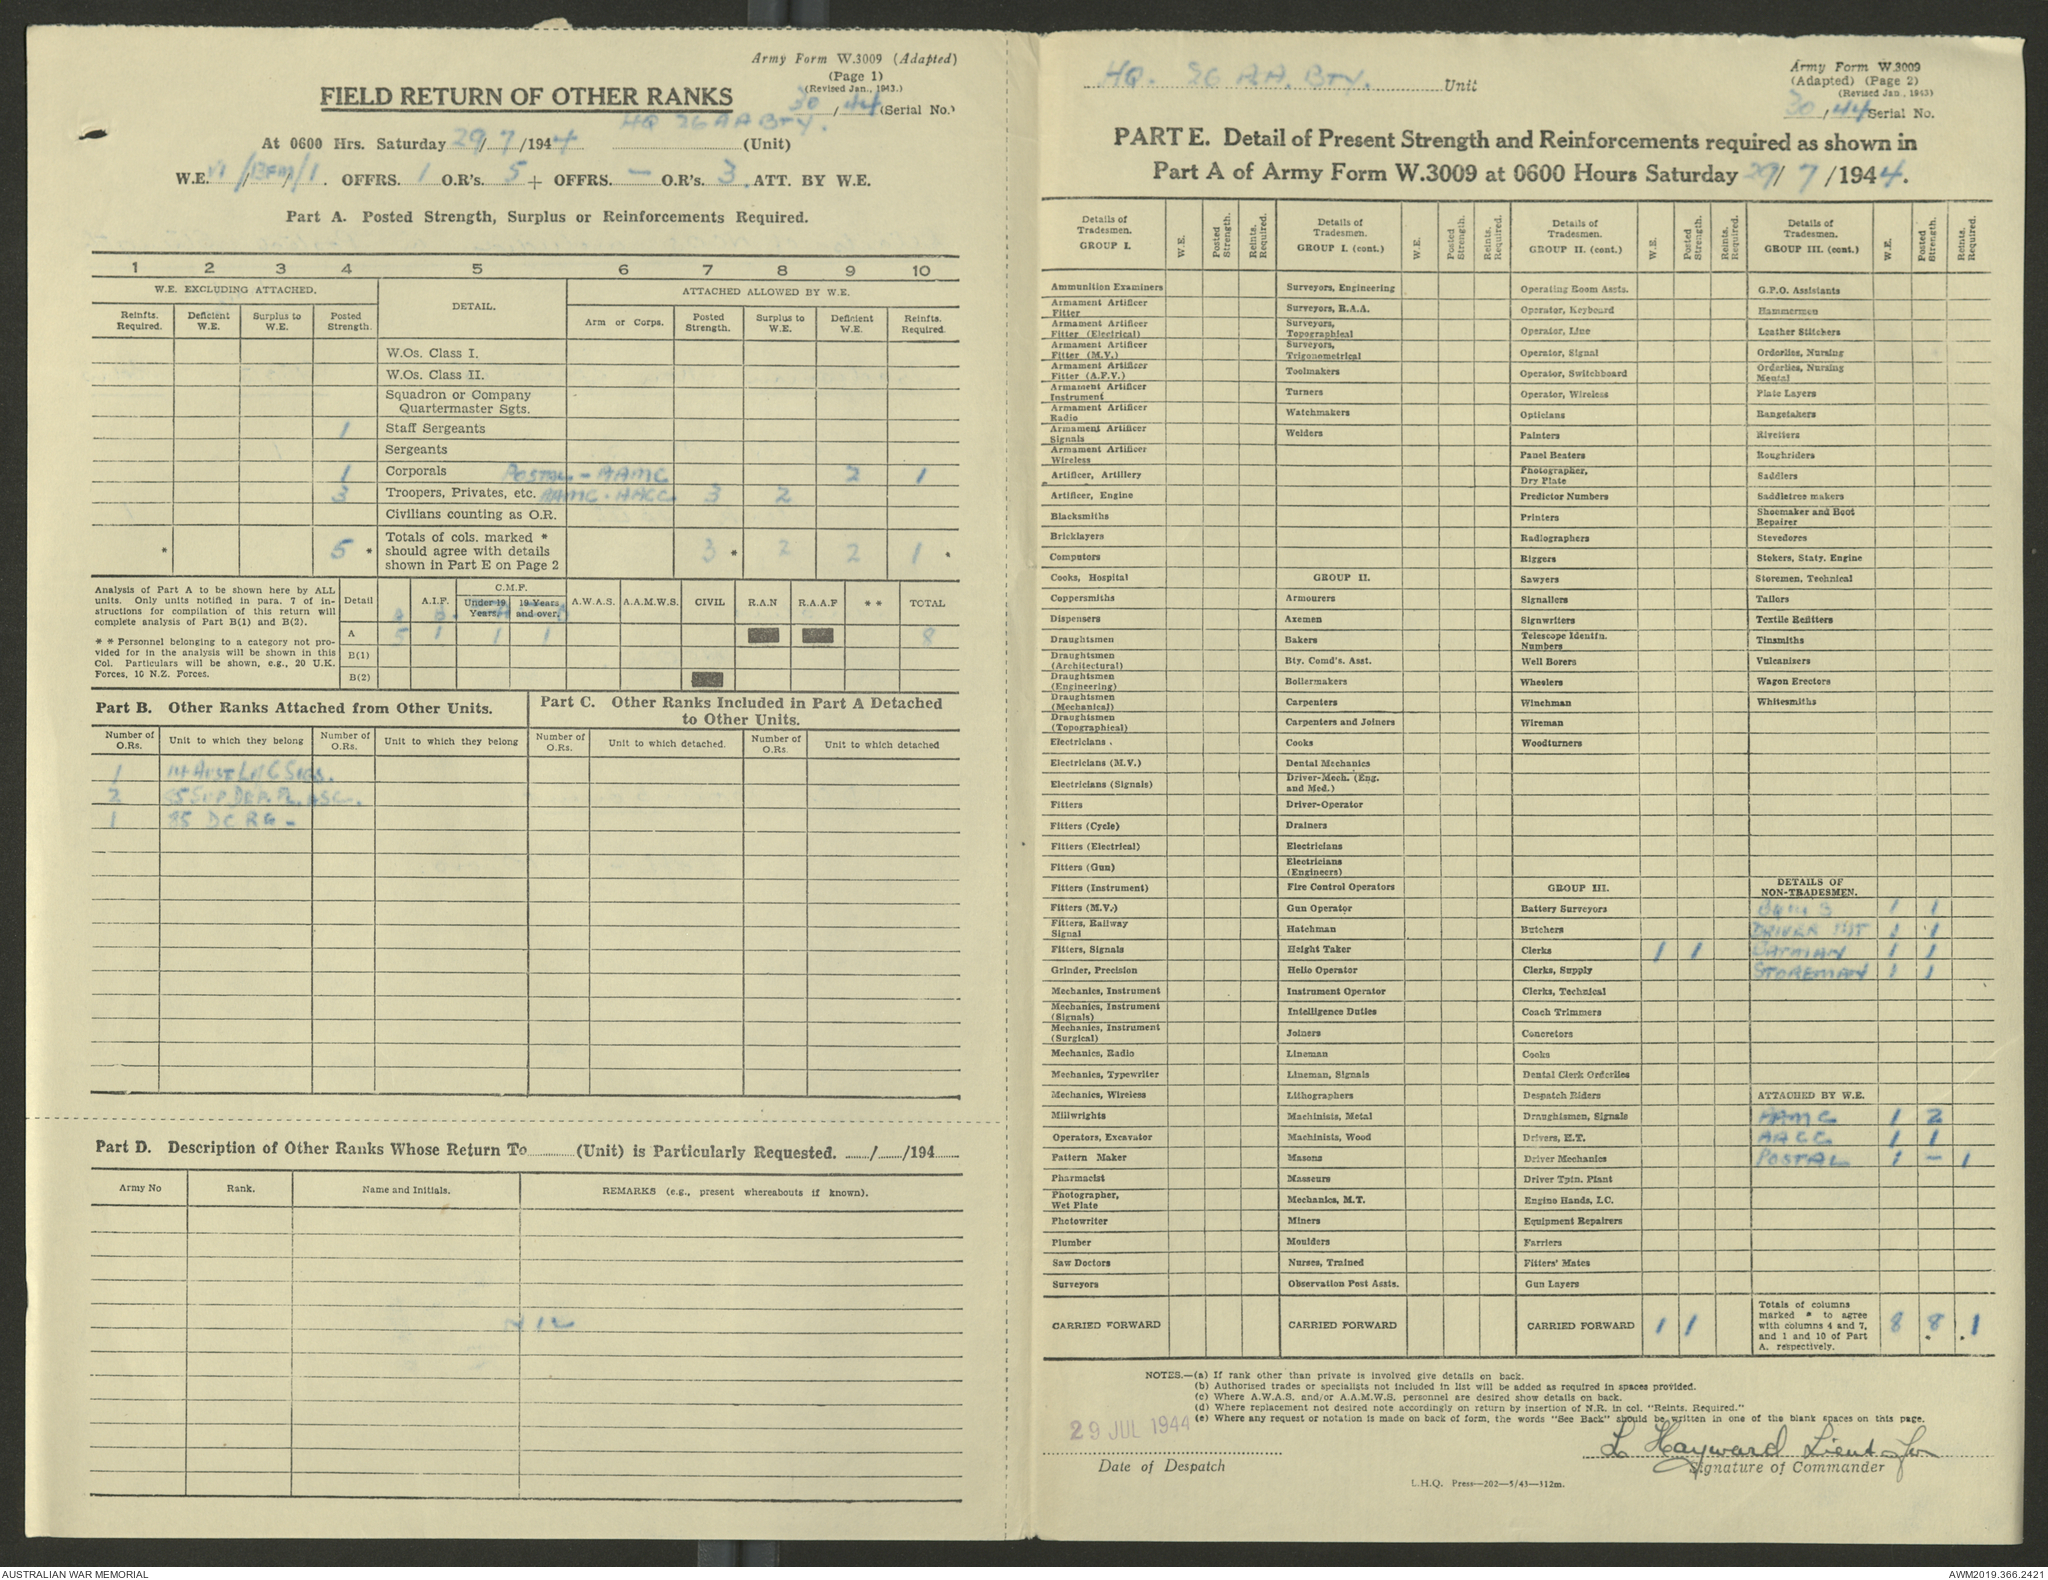 Army Form W.3009 (Adapted)
(Page 1)
(Revised Jan., 1943.)
30/44 (Serial No.)
FIELD RETURN OF OTHER RANKS
HQ 26 AA BTY.
At 0600 Hrs. Saturday 29/7/1944 (Unit)
W.E. VI / / /1. OFFRS. 1 O.R's. 5 + OFFRS. — O.R's. 3. ATT. BY W.E.
Part A. Posted Strength, Surplus or Reinforcements Required.
1 2 3 4 5 6 7 8 9 10
W.E. EXCLUDING ATTACHED. DETAIL. ATTACHED ALLOWED BY W.E.
Reinfts. Required. Deficient W.E. Surplus to W.E. Posted Strength. Arm or Corps. Posted Strength. Surplus to W.E. Deficient W.E. Reinfts. Required.
W.Os. Class I.
W.Os. Class II.
Squadron or Company
Quartermaster Sgts.
1 Staff Sergeants
Sergeants
1 Corporals POSTAL - AAMC 2 1
3 Troopers, Privates, etc. AAMC. AACC. 3 2
Civilians counting as O.R.
* 5 * Totals of cols. marked * should agree with details shown in Part E on Page 2 3 * 2 2 1 *
Analysis of Part A to be shown here by ALL units. Only units notified in para. 7 of instructions for compilation of this return will complete analysis of Part B(1) and B(2).
* * Personnel belonging to a category not provided for in the analysis will be shown in this Col. Particulars will be shown, e.g., 20 U.K. Forces, 10 N.Z. Forces.
Detail A.I.F. C.M.F. Under 19 Years. 19 Years and over. A.W.A.S. A.A.M.W.S. CIVIL R.A.N R.A.A.F * * TOTAL
A 5 1 1 1 8
B(1)
B(2)
Part B. Other Ranks Attached from Other Units.
Part C. Other Ranks Included in Part A Detached to Other Units.
Number of O.Rs. Unit to which they belong Number of O.Rs. Unit to which they belong Number of O.Rs. Unit to which detached. Number of O.Rs. Unit to which detached
1 AUST L of C SIGS.
2 SUP DEP. PL.
1 DC RG -
Part D. Description of Other Ranks Whose Return To (Unit) is Particularly Requested. / /194
Army No Rank. Name and Initials. REMARKS (e.g., present whereabouts if known).
NIL
HQ. 26 A.A. BTY. Unit
Army Form W.3009
(Adapted) (Page 2)
(Revised Jan., 1943)
30/44 Serial No.
PART E. Detail of Present Strength and Reinforcements required as shown in
Part A of Army Form W.3009 at 0600 Hours Saturday 29/7/1944.
Details of Tradesmen. GROUP I. W.E. Posted Strength. Reints. Required.
Ammunition Examiners
Armament Artificer Fitter
Armament Artificer Fitter (Electrical)
Armament Artificer Fitter (M.V.)
Armament Artificer Fitter (A.F.V.)
Armament Artificer Instrument
Armament Artificer Radio
Armament Artificer Signals
Armament Artificer Wireless
Artificer, Artillery
Artificer, Engine
Blacksmiths
Bricklayers
Computors
Cooks, Hospital
Coppersmiths
Dispensers
Draughtsmen
Draughtsmen (Architectural)
Draughtsmen (Engineering)
Draughtsmen (Mechanical)
Draughtsmen (Topographical)
Electricians
Electricians (M.V.)
Electricians (Signals)
Fitters
Fitters (Cycle)
Fitters (Electrical)
Fitters (Gun)
Fitters (Instrument)
Fitters (M.V.)
Fitters, Railway Signal
Fitters, Signals
Grinder, Precision
Mechanics, Instrument
Mechanics, Instrument (Signals)
Mechanics, Instrument (Surgical)
Mechanics, Radio
Mechanics, Typewriter
Mechanics, Wireless
Millwrights
Operators, Excavator
Pattern Maker
Pharmacist
Photographer, Wet Plate
Photowriter
Plumber
Saw Doctors
Surveyors
CARRIED FORWARD
Details of Tradesmen. GROUP I. (cont.) W.E. Posted Strength. Reints. Required.
Surveyors, Engineering
Surveyors, R.A.A.
Surveyors, Topographical
Surveyors, Trigonometrical
Toolmakers
Turners
Watchmakers
Welders
GROUP II.
Armourers
Axemen
Bakers
Bty. Comd's. Asst.
Boilermakers
Carpenters
Carpenters and Joiners
Cooks
Dental Mechanics
Driver-Mech. (Eng. and Med.)
Driver-Operator
Drainers
Electricians
Electricians (Engineers)
Fire Control Operators
Gun Operator
Hatchman
Height Taker
Helio Operator
Instrument Operator
Intelligence Duties
Joiners
Lineman
Lineman, Signals
Lithographers
Machinists, Metal
Machinists, Wood
Masons
Masseurs
Mechanics, M.T.
Miners
Moulders
Nurses, Trained
Observation Post Assts.
CARRIED FORWARD
Details of Tradesmen. GROUP II. (cont.) W.E. Posted Strength. Reints. Required.
Operating Room Assts.
Operator, Keyboard
Operator, Line
Operator, Signal
Operator, Switchboard
Operator, Wireless
Opticians
Painters
Panel Beaters
Photographer, Dry Plate
Predictor Numbers
Printers
Radiographers
Riggers
Sawyers
Signallers
Signwriters
Telescope Identfn. Numbers
Well Borers
Wheelers
Winchman
Wireman
Woodturners
GROUP III.
Battery Surveyors
Butchers
Clerks 1 1
Clerks, Supply
Clerks, Technical
Coach Trimmers
Concretors
Cooks
Dental Clerk Orderlies
Despatch Riders
Draughtsmen, Signals
Drivers, H.T.
Driver Mechanics
Driver Tptn. Plant
Engine Hands, I.C.
Equipment Repairers
Farriers
Fitters' Mates
Gun Layers
CARRIED FORWARD 1 1
Details of Tradesmen. GROUP III. (cont.) W.E. Posted Strength. Reints. Required.
G.P.O. Assistants
Hammermen
Leather Stitchers
Orderlies, Nursing
Orderlies, Nursing Mental
Plate Layers
Rangetakers
Rivetters
Roughriders
Saddlers
Saddletree makers
Shoemaker and Boot Repairer
Stevedores
Stokers, Staty. Engine
Storemen, Technical
Tailors
Textile Refitters
Tinsmiths
Vulcanizers
Wagon Erectors
Whitesmiths
DETAILS OF NON-TRADESMEN.
BQMS 1 1
DRIVER MT 1 1
BATMAN 1 1
STOREMAN 1 1
ATTACHED BY W.E.
AAMC 1 2
AACC 1 1
POSTAL 1 - 1
Totals of columns marked * to agree with columns 4 and 7, and 1 and 10 of Part A. respectively. 8 8 * * 1
NOTES.—(a) If rank other than private is involved give details on back.
(b) Authorised trades or specialists not included in list will be added as required in spaces provided.
(c) Where A.W.A.S. and/or A.A.M.W.S. personnel are desired show details on back.
(d) Where replacement not desired note accordingly on return by insertion of N.R. in col. "Reints. Required."
(e) Where any request or notation is made on back of form, the words "See Back" should be written in one of the blank spaces on this page.
29 JUL 1944
L Hayward Lieut for
Date of Despatch
Signature of Commander
L.H.Q. Press—202—5/43—512m.
AUSTRALIAN WAR MEMORIAL
AWM2019.366.2421